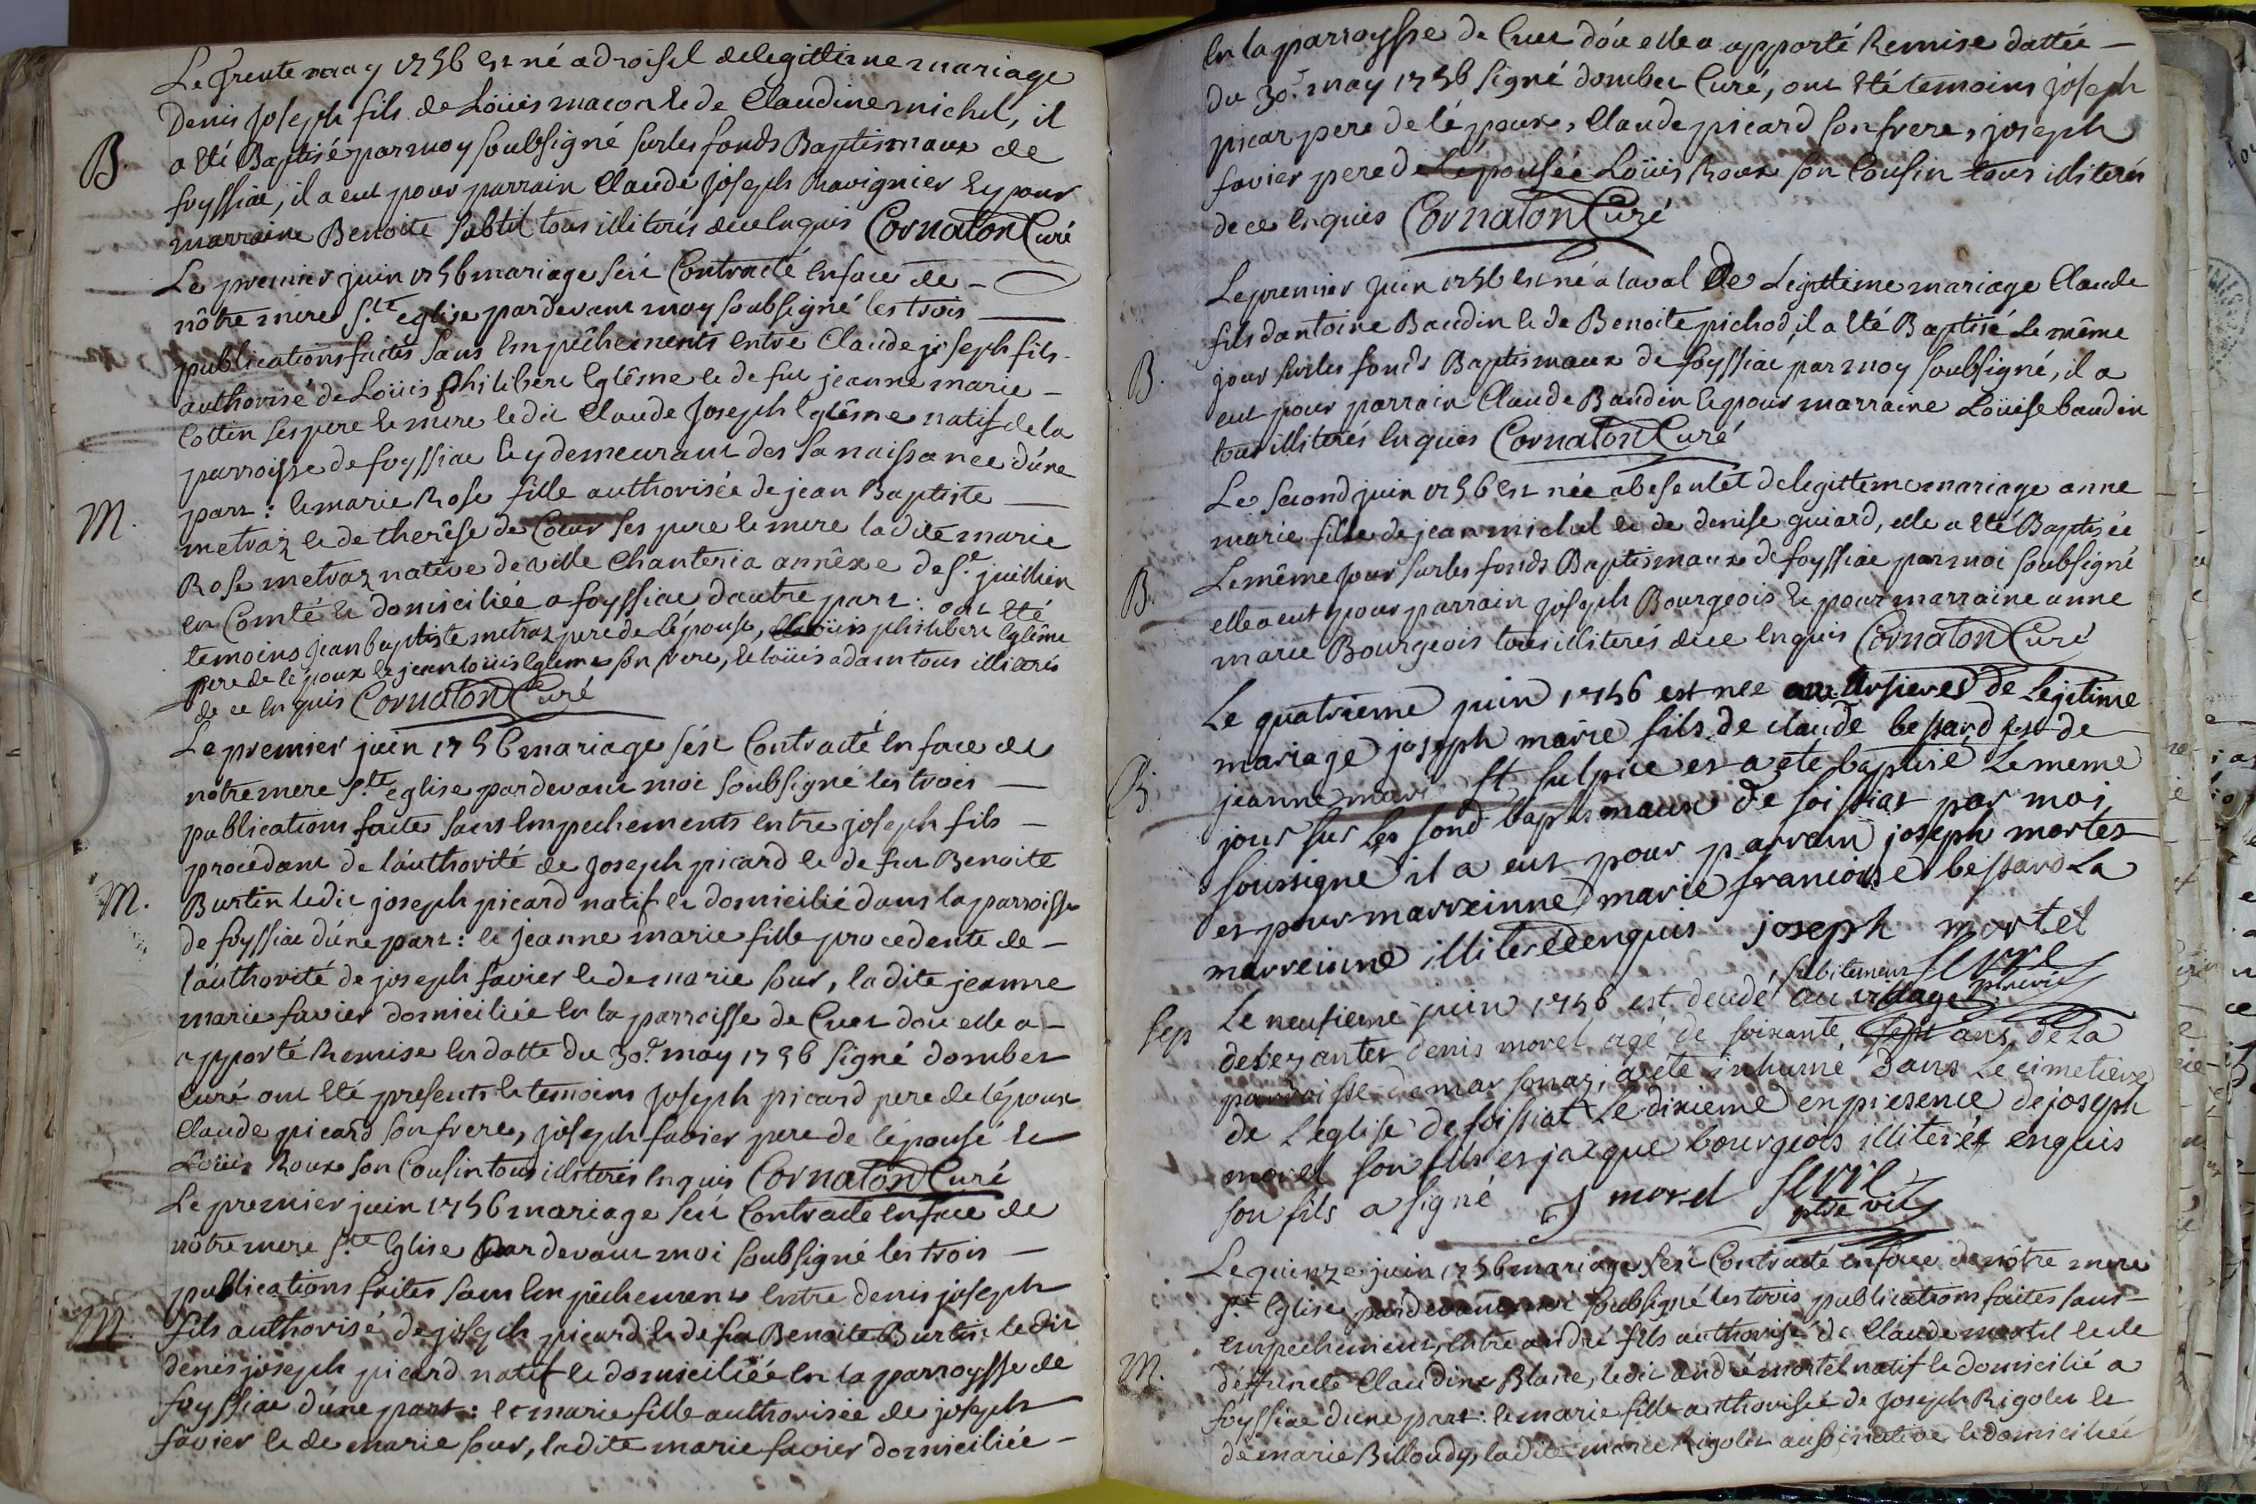 Le trente may 1756 est né a droisel de legittime mariage
Denis Joseph fils de Loüis macon et de Claudine michel, il
B. a eté Baptisé par moy soubsigné sur les fonds Baptismaux de
foyssiac, il a eut pour parrain Claude Joseph Ravignier Et pour
marraine Benoite Subtil tous illiterés de ce Enquis Cornaton Curé
Le premier juin 1756 mariage s'est Contracté En face de
nôtre mere S.te eglise pardevant moy soubsigné les trois
publications faites sans Empêchements entre Claude joseph fils
authorisé de Loüis philibert Eglême et de fut jeanne marie
Cottin ses pere et mere ledit Claude Joseph Eglême natif de la
parroisse de foyssiac Et y demeurant des sa naissance d'une
M. part : et marie Rose fille authorisée de jean Baptiste
metraz et de therêse de Coeur ses pere et mere la dite marie
Rose metraz native de ville Chanteria annêxe de S.t juillien
en Comté et domiciliée a foyssiac d'autre part : ont eté
temoins jean baptiste metraz pere de l'épouse, Loüis philibert Eglême
pere de l'epoux et jean loüis Egleme son frere, et loüis adam tous illiterés
de ce enquis Cornaton Curé
Le premier juin 1756 mariage s'est Contracté En face de
nôtre mere S.te eglise pardevant moi soubsigné les trois
publications faites sans Empechements entre joseph fils
procedant de l'authorité de Joseph picard et de fut Benoite
M. Burtin ledit joseph picard natif et domicilié dans la parroisse
de foyssiac d'une part : et jeanne marie fille procedente de
l'authorité de joseph favier et de marie sour, la dite jeanne
marie favier domiciliée En la parroisse de Cuet dou elle a
apporté Remise En datte du 30.e may 1756 signé dombet
curé ont eté presents et temoins Joseph picard pere de l'époux
Claude picard son frere, joseph favier pere de l'épousé et
Loüis Roux son Cousin tous illiterés enquis Cornaton Curé
Le premier juin 1756 mariage s'est Contracté En face de
nôtre mere S.te Eglise par devant moi soubsigné les trois
publications faites sans Empêchements Entre denis joseph
M. fils authorisé de joseph picard et de fut Benoite Burtin ledit
denis joseph picard natif et domiciliée En la parroysse de
foyssiac d'une part : et marie fille authorisée de joseph
favier et de marie sour, la dite marie favier domiciliée
En la parroysse de Cuet d'ou elle a apporté Remise dattée
du 30.e may 1756 signé dombet Curé, ont eté temoins joseph
picar pere de l'époux, Claude picard son frere, joseph
favier pere de l'épousée Loüis Roux son Cousin tous illiterés
de ce Enquis Cornaton Curé
Le premier Juin 1756 est né a laval De Legittime mariage Claude
fils dantoine Baudin et de Benoite pichod, il a eté Baptisé Le même
B. jour sur les fonds Baptismaux de foyssiac par moy soubsigné, il a
eut pour parrain Claude Baudin et pour marraine Loüise baudin
tous illiterés enquis Cornaton Curé
Le second juin 1756 est née a besentet de legittime mariage anne
marie fille de jean michel et de denise guiard, elle a eté Baptisée
Le même Jour sur les fonds Baptismaux de foyssiac par moi soubsigné
B. elle a eut pour parrain joseph Bourgeois et pour marraine anne
marie Bourgeois tous illiterés de ce Enquis Cornaton Curé
Le quatrieme juin 1756 est nee au de Legitime
mariage joseph marie fils de claude bessard est de
B. jeanne mari St Sulpice et a ete baptisé Le meme
jour sur les fond baptismaux de foissiat par moi
soussigne il a eut pour parrain joseph mortet
et pour marreinne marie francoise bessard La
marreinne illiteréé enquis joseph mortel
Sep Le neufieme juin 1756 est decedé subitement au village
denis morel agé de soixante sept ans de La
parroisse de marsonaz, a ete inhumé dans Le cimetiere
de Leglise de foissiat Le dixieme en presence de joseph
morel son fils et jacque bourgeois illiterés enquis
son fils a signé J morel
Le quinze juin 1756 mariage s'est Contracté En face de nôtre mere
S.te Eglise pardevant moi soubsigné les trois publications faites sans
empechement, entre andré fils authorisé de Claude mortel et de
M. deffuncte Claudine Blanc, ledit andré mortel natif et domicilié a
foyssiac d'une part : et marie fille authorisée de Joseph Rigolet et
de marie Billoudy, ladite marie Rigolet aussi native et domiciliée